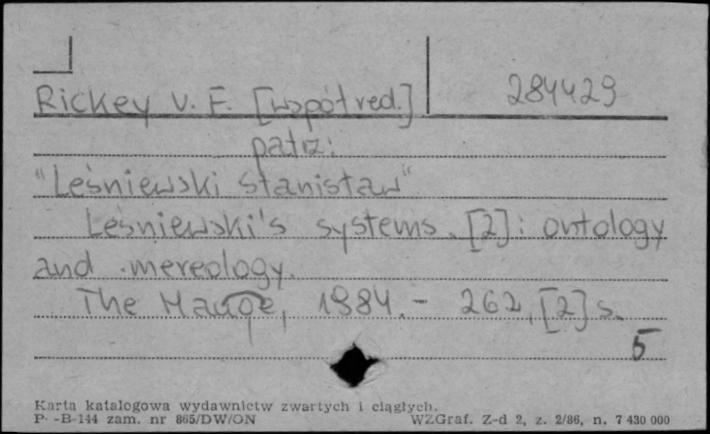 Rickey V. F. [współred.]
284429
patrz:
"Leśniewski Stanisław"
Leśniewski's systems. [2]: ontology
and mereology.
The Hauge, 1984. - 262, [2] s.
5
Karta katalogowa wydawnictw zwartych i ciągłych.
P- -B-144 zam. nr 865/DW/ON
WZGraf. Z-d 2, z. 2/86, n. 7 430 000